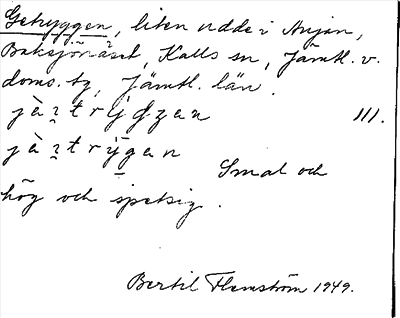 Getryggen, liten udde i Anjan,
Baksjönäset, Kalls sn, Jämtl. v.
doms. tg, Jämtl. län.
jàɪtrýgzen III.
jàɪtrýgan
Smal och
hög och spetsig.
Bertil Flemström 1949.